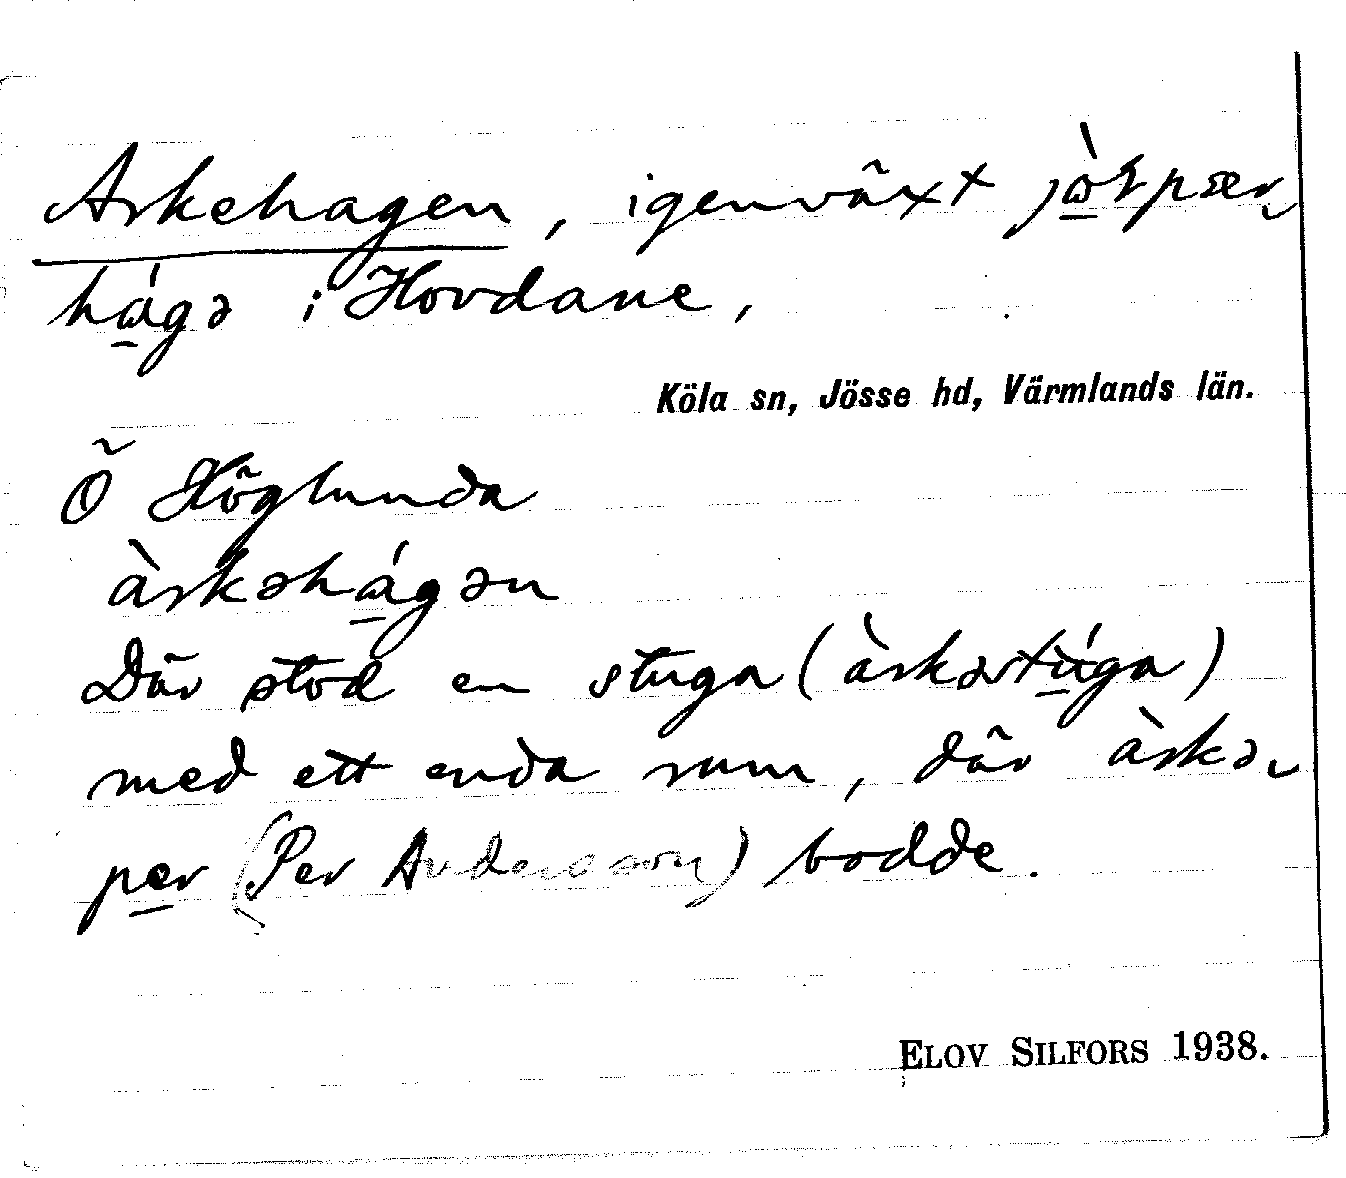 Askehagen, igenväxt
hágə i Hovdane,
Köla sn, Jösse hd, Värmlands län.
Ö Höglunda
àskəhágən
Där stod en stuga (àskəstúga)
med ett enda rum, där àskə-
per (Per Andersson) bodde.
ELOV SILFORS 1938.